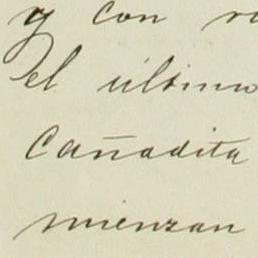 y con
el último
Cañadita
mienzan